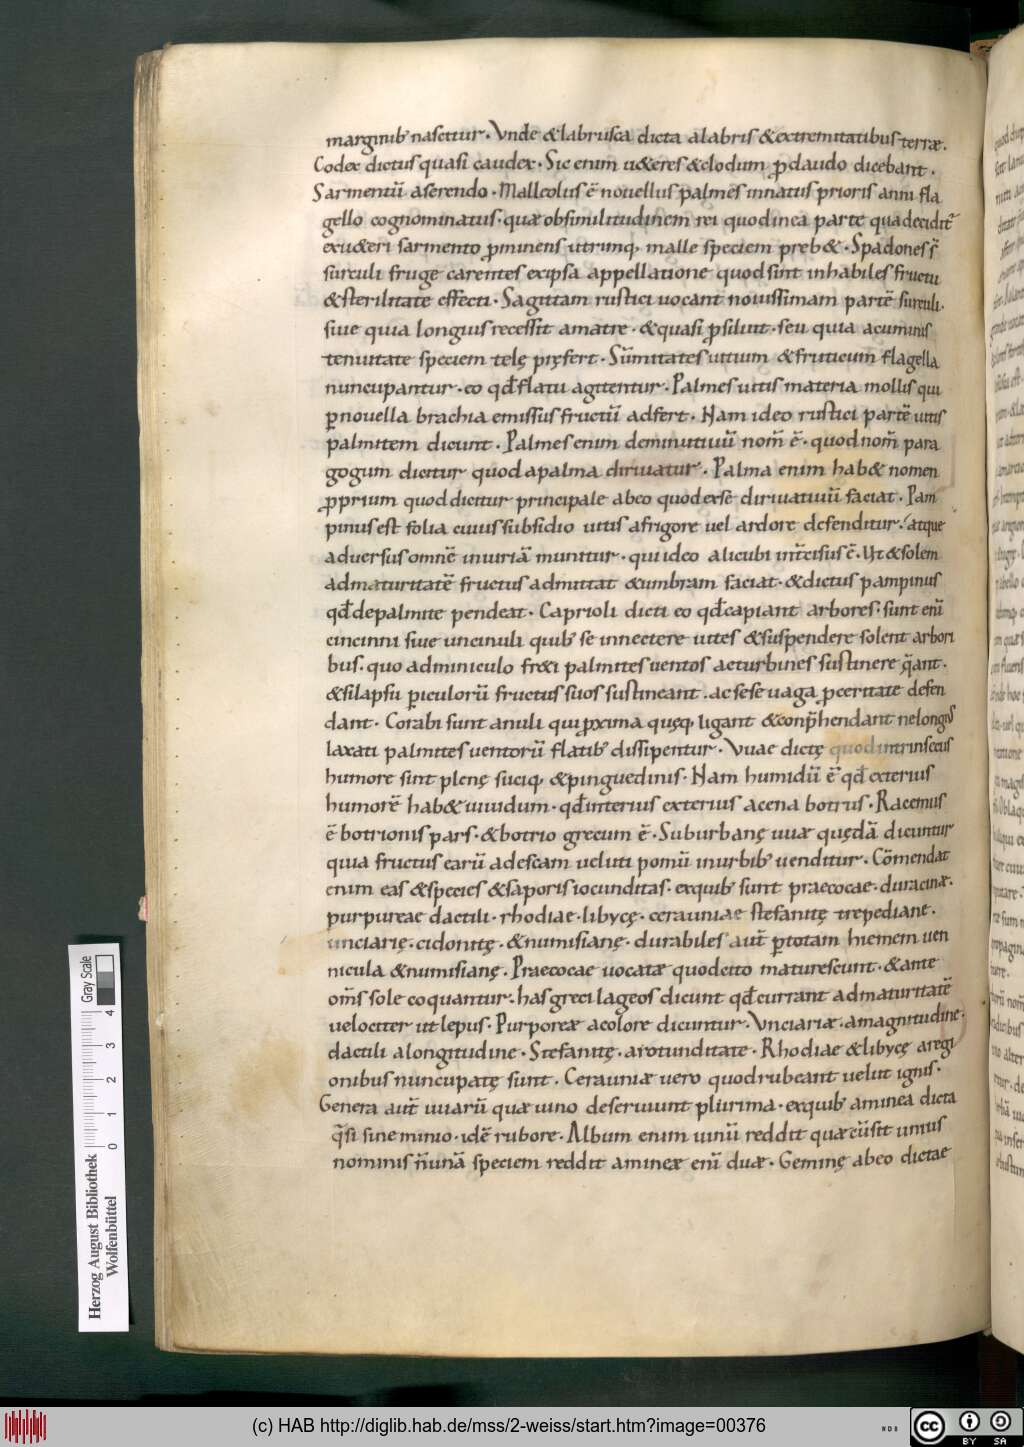 marginib; nascitur. Vnde & labrusca dicta a labris & extremitatibus terrae.
Codex dictus quasi caudex. Sic enim u&eres & clodum p̱ claudo dicebant.
Sarmentū a serendo. Malleolus ē nouellus palmes innatus prioris anni fla
gello cognominatus. quae ob similitudinem rei quod in ea parte qua deciditᷣ
exu&eri sarmento p̱minens utrimq; malle speciem preb&. Spadones s̄
surculi fruge carentes ex ipsa appellatione quod sint inhabiles fructu
& sterilitate effecti. Sagittam rustici uocant nouissimam partē surculi.
siue quia longius recessit a matre. & quasi p̱siliit. seu quia acuminis
tenuitate speciem telę pręfert. Sūmitates uitium & fruticum flagella
nuncupantur. eo qđ flatu agitentur. Palmes uitis materia mollis qui
ꝑ nouella brachia emissus fructū adfert. Nam ideo rustici partē uitis
palmitem dicunt. Palmes enim deminutiuū nom̄ ē. quod nom̄ para
gogum dicitur quod a palma diriuatur. Palma enim hab& nomen
p̱prium quod dicitur principale ab eo quod ex se diriuatiuū faciat. Pam
pinus est folia cuius subsidio uitis a frigore uel ardore defenditur. atque
aduersus omnē iniuriā munitur. qui ideo alicubi int̄cisus ē. Ut & solem
ad maturitatē fructus admittat & umbram faciat. & dictus pampinus
qđ de palmite pendeat. Caprioli dicti eo qđ capiant arbores. sunt enī
cincinni siue uncinuli quib; se innectere uites & suspendere solent arbori
bus. quo adminiculo fr&i palmites uentos ac turbines sustinere q̄ant.
& si lapsu ꝑiculorū fructus suos sustineant. ac sese uaga p̱ceritate defen
dant. Corabi sunt anuli qui p̱xima quęq; ligant & conp̄hendant ne longius
laxati palmites uentorū flatib; dissipentur. Vuae dictę quod intrinsecus
humore sint plenę suciq; & pinguedinis. Nam humidū ē qđ exterius
humorē hab& uuidum. qđ interius exterius acena botrus. Racemus
ē botrionis pars. & botrio grecum ē. Suburbanę uuae quędā dicuntur
quia fructus earū ad escam ueluti pomū in urbib; uenditur. Cōmendat
enim eas & species & saporis iocunditas. ex quib; sunt praecocae. duracinae.
purpureae dactili. rhodiae. libycę. cerauniae stefanitę trepediane.
unciarię. cidonitę. & numisianę. durabiles aut̄ ꝑ totam hiemem uen
nicula & numisianę. Praecocae uocatae quod cito maturescunt. & ante
om̄s sole coquantur. has greci lageos dicunt qđ currant ad maturitatē
uelociter ut lepus. Purporeae a colore dicuntur. Vnciariae. a magnitudine.
dactili a longitudine. Stefanitę. a rotunditate. Rhodiae & libycę a regi
onibus nuncupatę sunt. Cerauniae uero quod rubeant uelut ignis.
Genera aut̄ uuarū quae uino deseruiunt plurima. ex quib; aminea dicta
q̄si sine minio. idē rubore. Album enim uinū reddit quae cū sit unius
nominis n̄ unā speciem reddit amineae enī duae. Geminę ab eo dictae
Herzog August Bibliothek
Wolfenbüttel
0 1 2 3 4
Gray Scale
(c) HAB http://diglib.hab.de/mss/2-weiss/start.htm?image=00376
cc BY SA